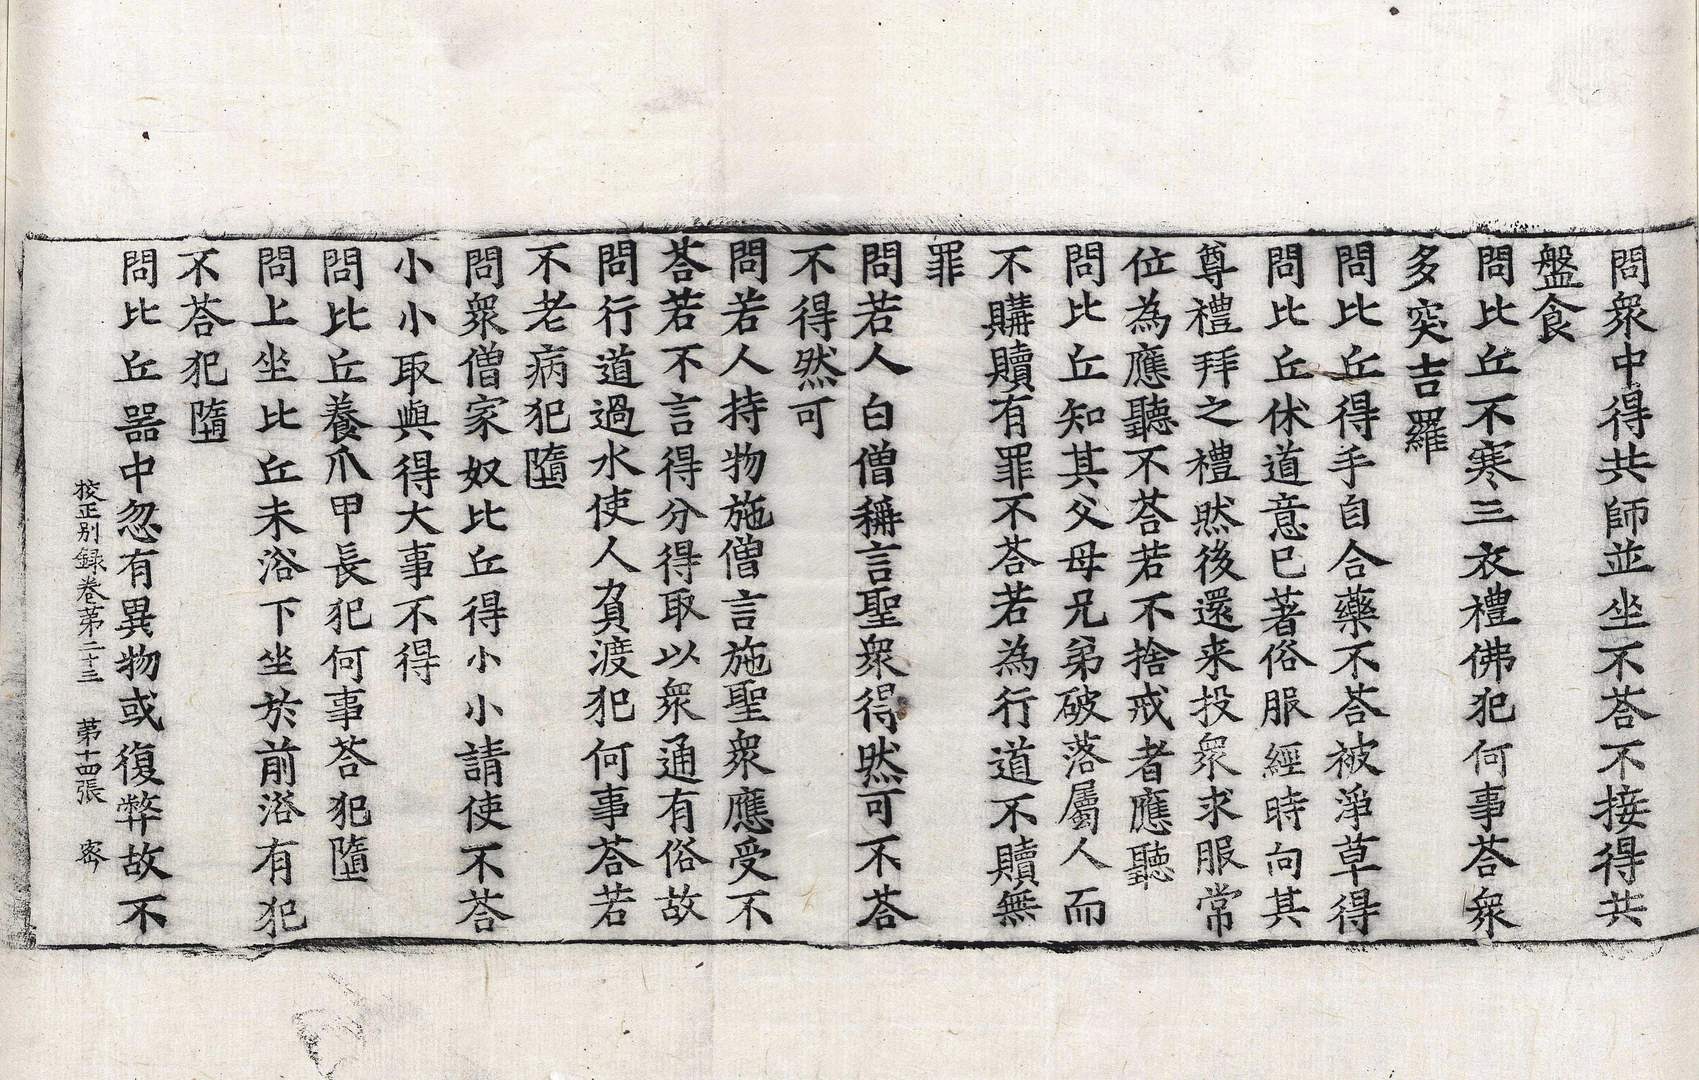 問衆中得共師並坐不荅不接得共
盤食
問比丘不寒三衣禮佛犯何事荅衆
多突吉羅
問比丘得手自合藥不荅被淨草得
問比丘休道意已著俗服經時向其
尊禮拜之禮然後還来投衆求服常
位為應聽不荅若不捨戒者應聽
問比丘知其父母兄弟破落屬人而
不購贖有罪不荅若為行道不贖無
罪
問若人白僧稱言聖衆得然可不荅
不得然可
問若人持物施僧言施聖衆應受不
荅若不言得分得取以衆通有俗故
問行道過水使人負渡犯何事荅若
不老病犯墮
問衆僧家奴比丘得小小請使不荅
小小取與得大事不得
問比丘養爪甲長犯何事荅犯墮
問上坐比丘未浴下坐於前浴有犯
不荅犯墮
問比丘器中忽有異物或復弊故不
校正别録卷第二十三 第十四張 密